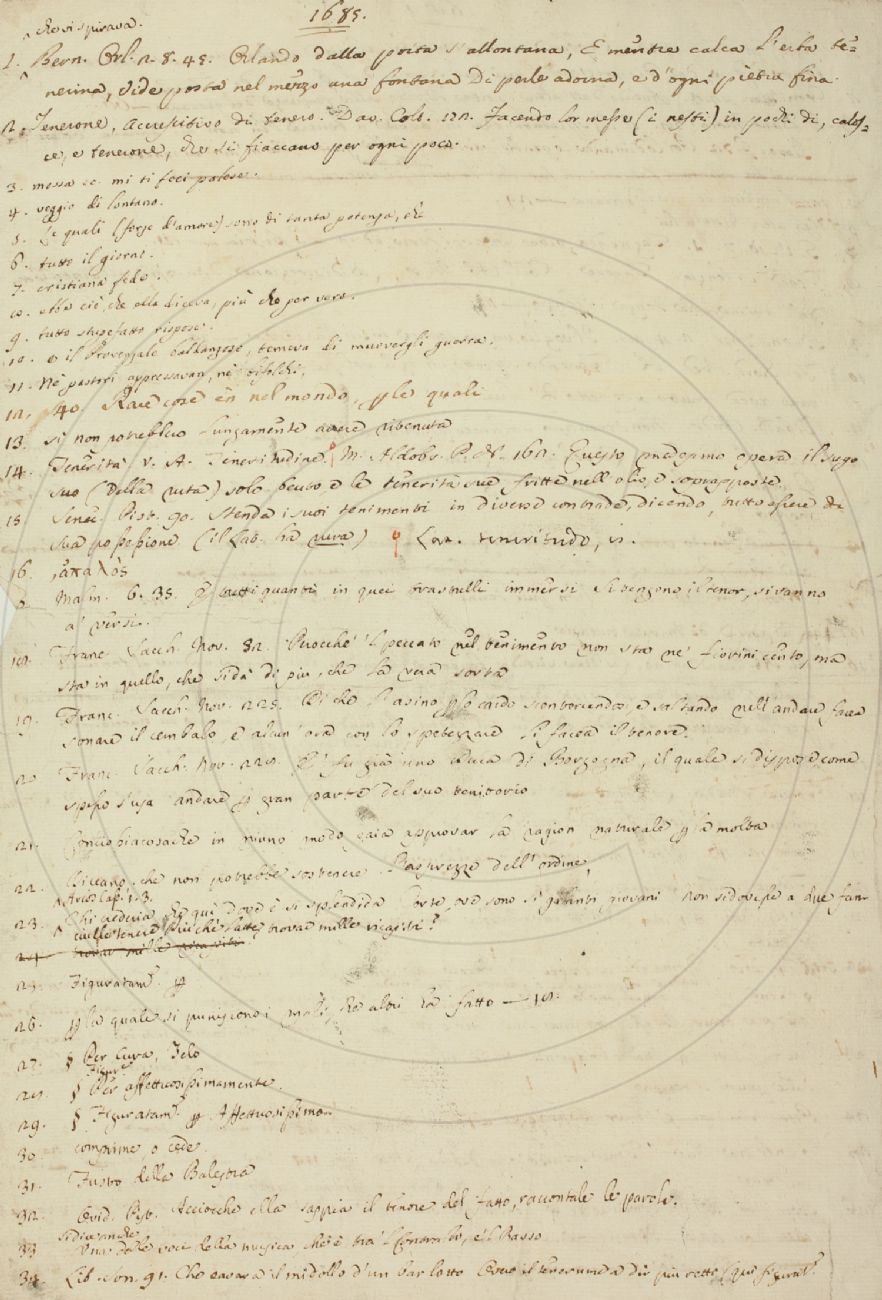 1685.
che vi spirava.
1. Bern. Orl. 2. 8. 45. Orlando dalla porta s'allontana, E mentre calca l'erba te-
nerina, Vide posta nel mezzo una fontana Di perle adorna, e d'ogni pietra fina.
2. Tenerone, Accrescitivo di tenero. Dav. Colt. 172. Facendo lor messe (i nesti) in pochi dì,
ce, e tenerone, che si fiaccano per ogni poco.
3. messa ec. mi ti feci palese.
4. veggio di lontano.
5. Le quali (forze d'amore) sono di tanta potenza, che
6. tutto il giorno.
7. cristiana fede.
8. ebbe ciò, che ella diceva, più che per vero.
9. tutto stupefatto rispose.
10. e il Provenzale baldanzoso, temeva di muovergli guerra.
11. Nè pastori appressavan, nè bifolchi,
12. 40. Rare cose èn nel mondo, le quali
13. si non potrebbero lungamente avere ribenuta
14. Tenerità v. A. Teneritudine. M. Aldobr. P. N. 162. Questo medesimo opera il sugo
suo (della ruta) solo beuto, e le tenerità sue fritte nell'olio, e sovrapposte.
15. Senec. Pist. 90. Stenda i suoi tenimenti in diverse contrade, dicendo, tutto essere di
sua possessione (il Lab. ha vera) Lat. teneritudo, is.
16. ἁπαλὸς
Malm. 6. 35. E tutti quanti in quei trastulli immersi Si tengono il tenor, si vanno
a' versi.
18. Franc. Sacch. Nov. 82. Perocchè 'l peccato nel tenimento non sta ne' fiorini cento, ma
sta in quello, che si dà di più, che la vera sorta
19. Franc. Sacch. Nov. 225. Di che l'asino lo caldo scontorcendo, e saltando nell'andare facea
sonare il cembalo, e alcun'ora con lo spetezzare si facea il tenore.
20. Franc. Sacch. Nov. E' fu già uno Duca di Borgogna, il quale si dispose come
spesso s'usa andare gran parte del suo tenitorio
21. Conciossiacosachè in niuno modo paia approvar la ragion naturale la molta
22. Diceano, che non potrebbe sostenere l'asprezze dell'ordine,
Arios. Cap. 123.
23. Chi crederia, che quì dove è sì splendida Corte, ove sono sì galanti giovani Non si dovesse a due fan-
ciulle tenere più che latte, trovar mille ricapiti?
24. trovar mille ricapiti
25. Figuratam.
26. la quale si puniscono i mali, che altri ha fatto — 18.
27. § Per Cura, Zelo
Figur.
28. § Per affettuosissimamente.
29. § Figuratam. Affettuosissimo.
30. comprime o cede.
31. Fusto della Balestra
32. Ovid. Pist. Acciocchè ella sappia il tenore del fatto, raccontale le parole.
si dice anche
33. Una delle voci della musica che è tra 'l Contralto, e 'l Basso
34. Lib. Son. 91. Che cavava il midollo d'un barlotto